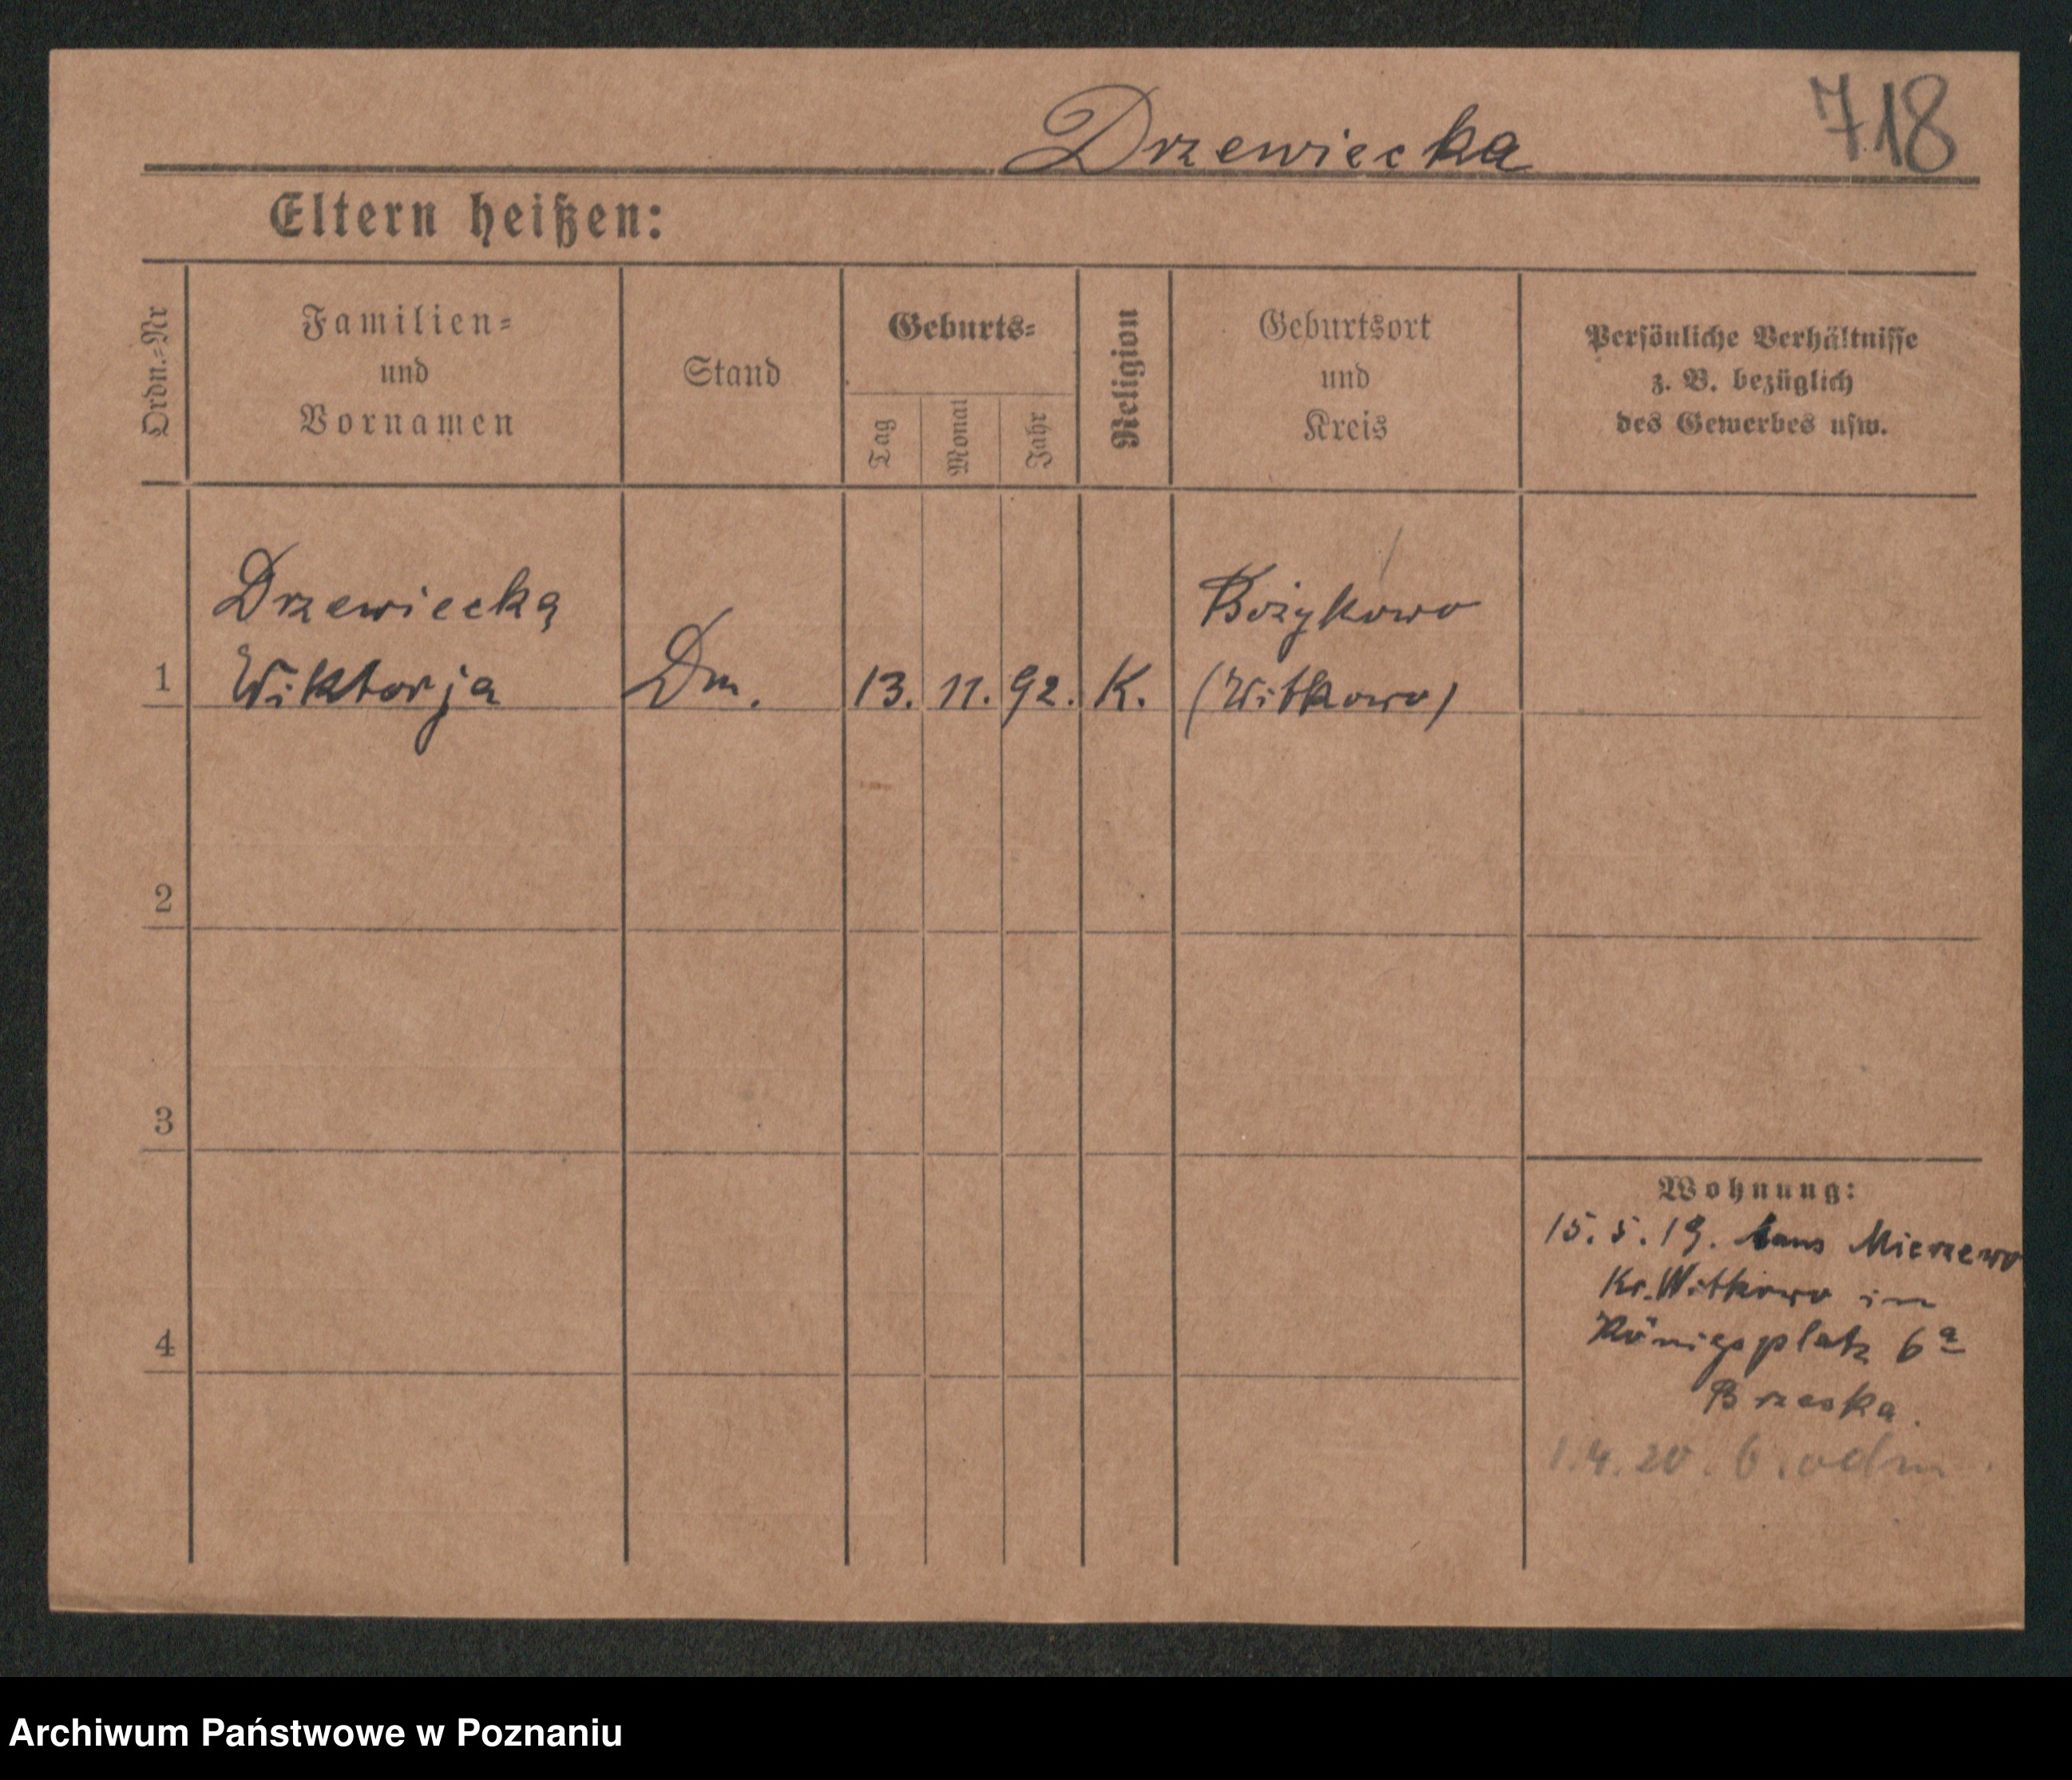 Drzewiecka
718
Eltern heißen:
Ordn.=Nr
Familien=
und
Vornamen
Stand
Geburts=
Tag
Monat
Jahr
Religion
Geburtsort
und
Kreis
Persönliche Verhältnisse
z. B. bezüglich
des Gewerbes usw.
1
Drzewiecka
Wiktorja
Dm.
13. 11. 92.
K.
Bożykowo
(Witkowo)
2
3
4
Wohnung:
15. 5. 19. aus Mierzewo
Kr. Witkowo in
Königsplatz 6a
Brzeska.
1.4.20. 6. odm.
Archiwum Państwowe w Poznaniu